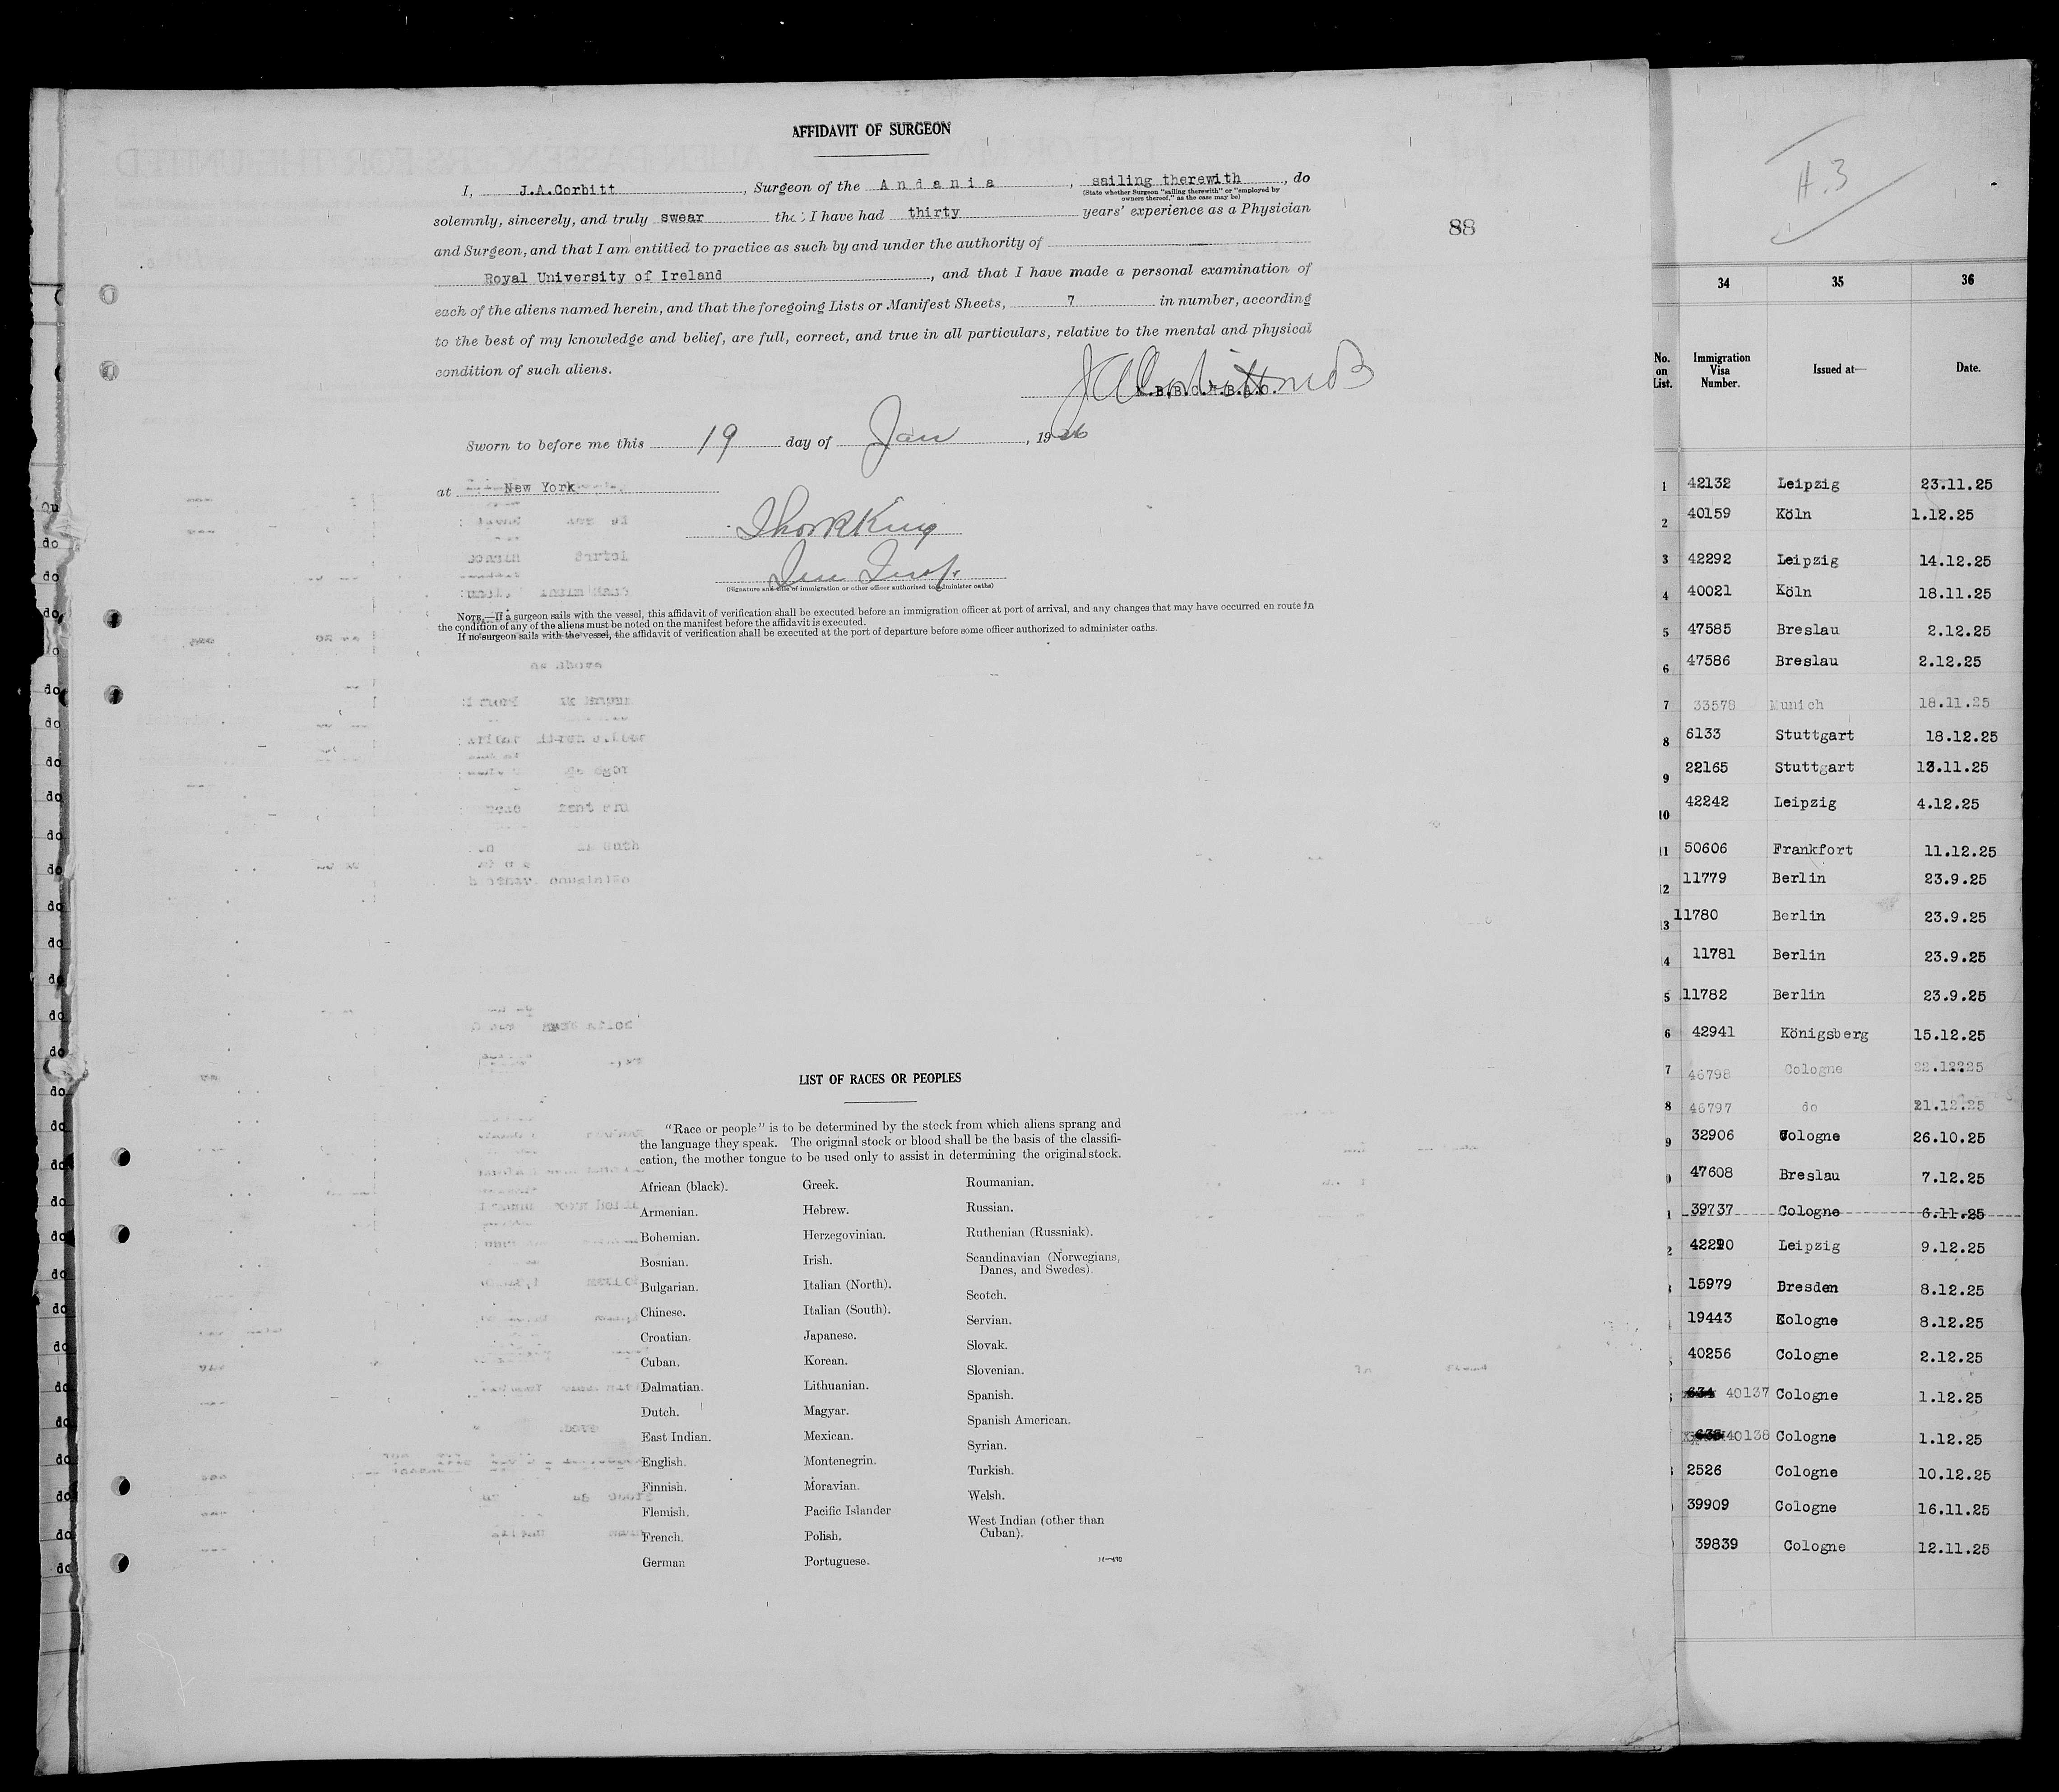 AFFIDAVIT OF SURGEON
I, J.A.Corbitt, Surgeon of the Andania, sailing therewith, do
(State whether Surgeon "sailing therewith" or "employed by
owners thereof," as the case may be)
solemnly, sincerely, and truly swear that I have had thirty years' experience as a Physician
and Surgeon, and that I am entitled to practice as such by and under the authority of
Royal University of Ireland, and that I have made a personal examination of
each of the aliens named herein, and that the foregoing Lists or Manifest Sheets, 7 in number, according
to the best of my knowledge and belief, are full, correct, and true in all particulars, relative to the mental and physical
condition of such aliens.
JA Corbitt MB
Sworn to before me this 19 day of Jan, 1926
at New York
King
(Signature and title of immigration or other officer authorized to administer oaths)
NOTE.—If a surgeon sails with the vessel, this affidavit of verification shall be executed before an immigration officer at port of arrival, and any changes that may have occurred en route in
the condition of any of the aliens must be noted on the manifest before the affidavit is executed.
If no surgeon sails with the vessel, the affidavit of verification shall be executed at the port of departure before some officer authorized to administer oaths.
88
LIST OF RACES OR PEOPLES
"Race or people" is to be determined by the stock from which aliens sprang and
the language they speak. The original stock or blood shall be the basis of the classifi-
cation, the mother tongue to be used only to assist in determining the original stock.
African (black).
Armenian.
Bohemian.
Bosnian.
Bulgarian.
Chinese.
Croatian.
Cuban.
Dalmatian.
Dutch.
East Indian.
English.
Finnish.
Flemish.
French.
German
Greek.
Hebrew.
Herzegovinian.
Irish.
Italian (North).
Italian (South).
Japanese.
Korean.
Lithuanian.
Magyar.
Mexican.
Montenegrin.
Moravian.
Pacific Islander
Polish.
Portuguese.
Roumanian.
Russian.
Ruthenian (Russniak).
Scandinavian (Norwegians,
Danes, and Swedes).
Scotch.
Servian.
Slovak.
Slovenian.
Spanish.
Spanish American.
Syrian.
Turkish.
Welsh.
West Indian (other than
Cuban).
H.3
34 35 36
No. on List. Immigration Visa Number. Issued at— Date.
1 42132 Leipzig 23.11.25
2 40159 Köln 1.12.25
3 42292 Leipzig 14.12.25
4 40021 Köln 18.11.25
5 47585 Breslau 2.12.25
6 47586 Breslau 2.12.25
7 33578 Munich 18.11.25
8 6133 Stuttgart 18.12.25
9 22165 Stuttgart 13.11.25
10 42242 Leipzig 4.12.25
11 50606 Frankfort 11.12.25
12 11779 Berlin 23.9.25
13 11780 Berlin 23.9.25
4 11781 Berlin 23.9.25
5 11782 Berlin 23.9.25
6 42941 Königsberg 15.12.25
7 46798 Cologne 22.12.25
8 46797 do 21.12.25
9 32906 Cologne 26.10.25
47608 Breslau 7.12.25
1 39737 Cologne 6.11.25
2 42290 Leipzig 9.12.25
15979 Dresden 8.12.25
19443 Cologne 8.12.25
40256 Cologne 2.12.25
40137 Cologne 1.12.25
40138 Cologne 1.12.25
2526 Cologne 10.12.25
39909 Cologne 16.11.25
39839 Cologne 12.11.25